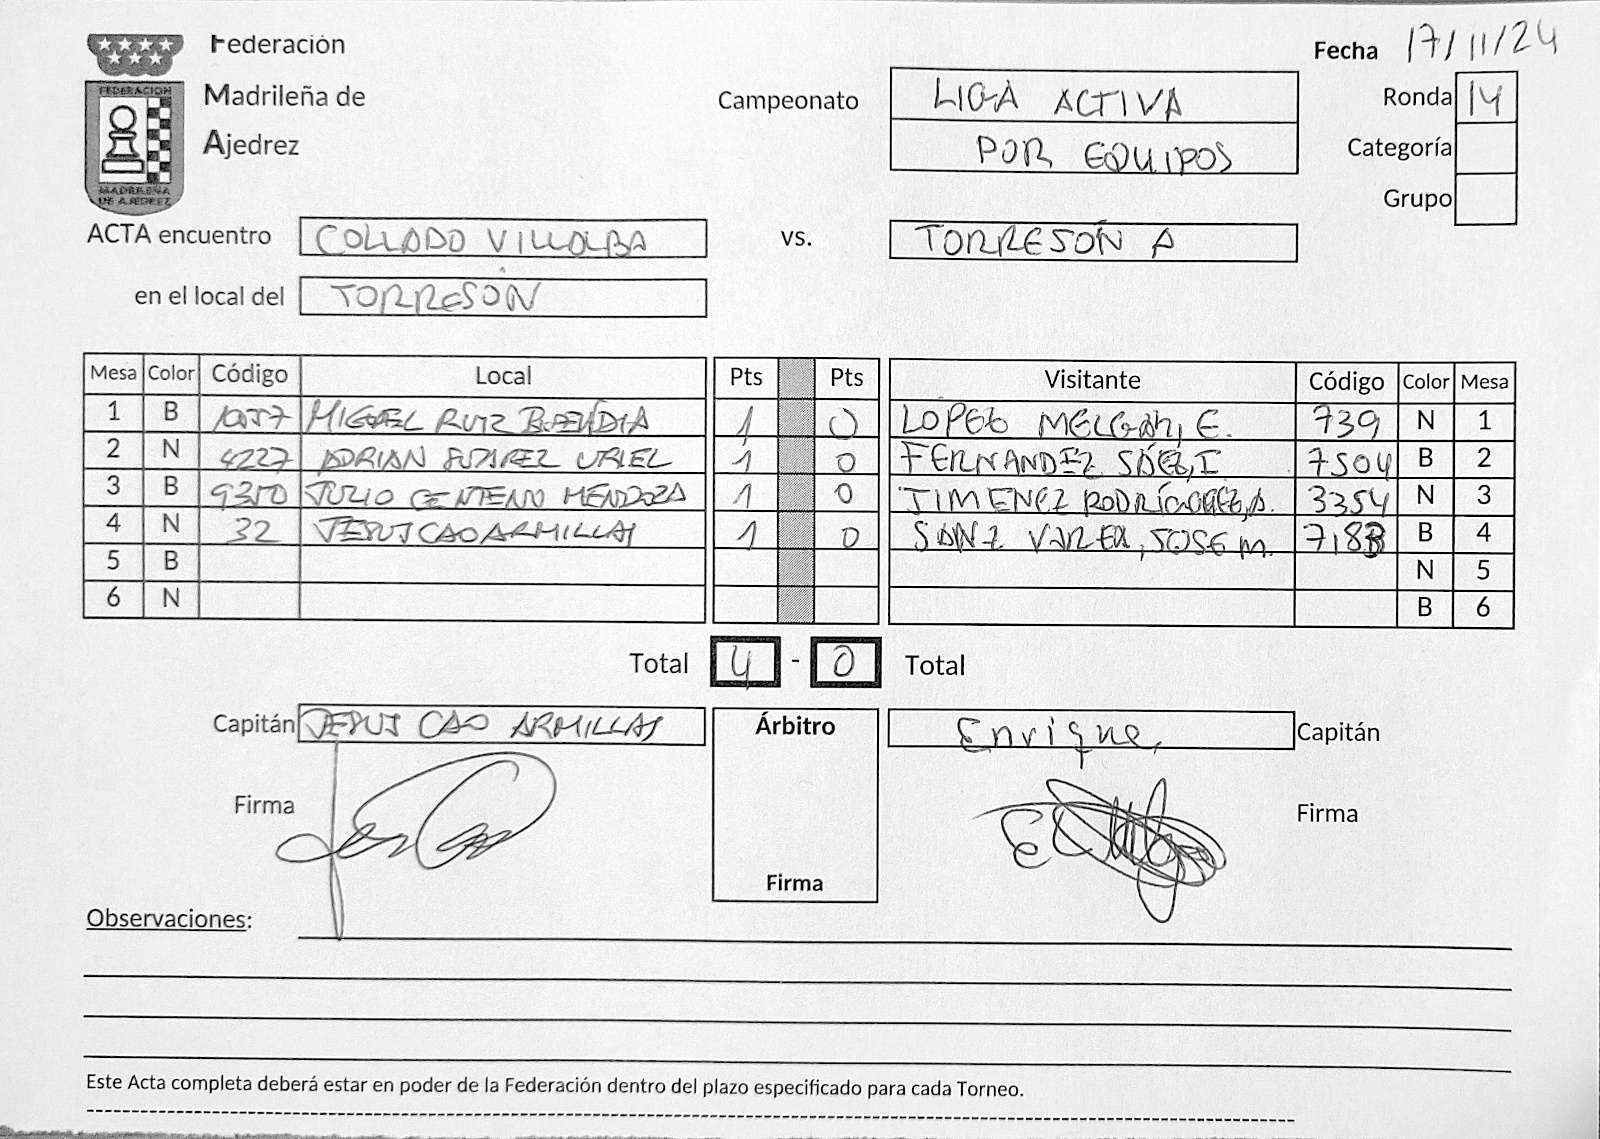 Federación
Madrileña de
Ajedrez
FEDERACION
MADRILEÑA
DE AJEDREZ
Fecha 17/11/24
Campeonato LIGA ACTIVA
POR EQUIPOS
Ronda 14
Categoría
Grupo
ACTA encuentro COLLADO VILLALBA vs. TORREJÓN A
en el local del TORREJÓN
Mesa Color Código Local Pts Pts Visitante Código Color Mesa
1 B MIGUEL RUIZ 1 0 LOPEZ MELGAR, E. 739 N 1
2 N 4227 ADRIAN SUAREZ URIEL 1 0 FERNANDEZ SÁEZ, I 7504 B 2
3 B 9350 JULIO CENTENO MENDOZA 1 0 JIMENEZ RODRÍGUEZ, A. 3354 N 3
4 N 32 JESUS CAO ARMILLAS 1 0 SANZ VAREA, JOSE M. B 4
5 B N 5
6 N B 6
Total 4 - 0 Total
Capitán JESUS CAO ARMILLAS Árbitro Enrique, Capitán
Firma Firma
Firma
Observaciones:
Este Acta completa deberá estar en poder de la Federación dentro del plazo especificado para cada Torneo.